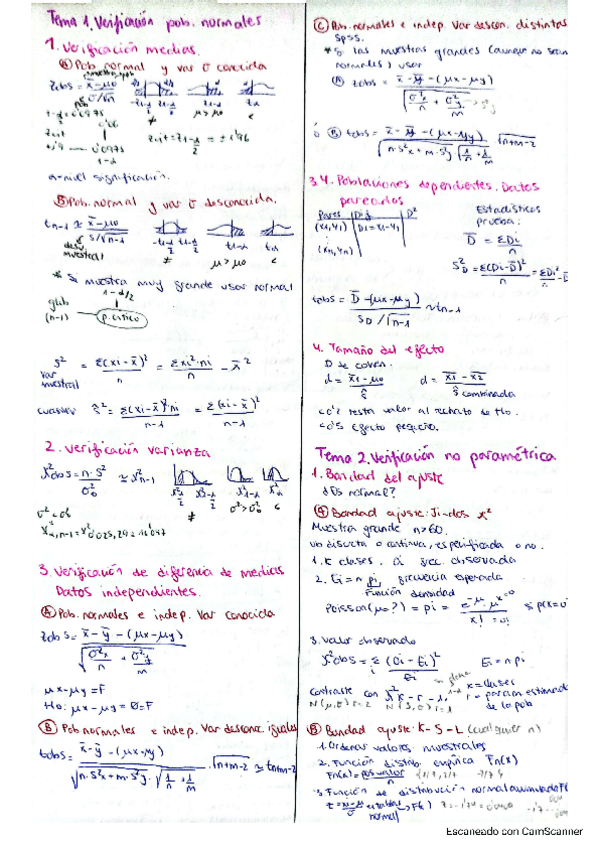 Tema 1. Verificación pob. normales
1. Verificación medias.
Ⓐ Pob. normal y var σ conocida
Zobs = x̄ - μ0 / σ/√n
≠ μ > μ0 <
Zcrit = Z1-α/2 = ± 1'96
α = nivel significación.
Ⓑ Pob. normal y var σ desconocida.
tn-1 ≅ x̄ - μ0 / S/√n-1
≠ μ > μ0 <
desv. muestral
* Si muestra muy grande usar normal
1 - α/2
glib (n-1) p. crítico
S² = Σ(xi - x̄)² / n = Σxi²·ni / n - x̄²
var muestral
cuasivar Ŝ² = Σ(xi - x̄)²ni / n-1 = Σ(xi - x̄)² / n-1
2. Verificación varianza
X²obs = n·S² / σ²0 ≅ X²n-1
≠ σ² > σ²0 <
3. Verificación de diferencia de medias
Datos independientes.
Ⓐ Pob. normales e indep. Var conocida
Zobs = x̄ - ȳ - (μx - μy) / √(σ²x/n + σ²y/m)
μx - μy = F
Ho: μx - μy = 0 = F
Ⓑ Pob normales e indep. Var desconc. iguales
tobs = x̄ - ȳ - (μx - μy) / √n·S²x + m·S²y · √1/n + 1/m · √n+m-2 ≅ tn+m-2
Ⓒ Pob. normales e indep. Var descon. distintas
SPSS.
* Si las muestras grandes (aunque no sean
normales) usar
Ⓐ Zobs = x̄ - ȳ - (μx - μy) / √(σ²x/n + σ²y/m)
ó Ⓑ tobs = x̄ - ȳ - (μx - μy) / √n·S²x + m·S²y √1/n + 1/m · √n+m-2
3.4. Poblaciones dependientes. Datos
pareados
Pares Di D²
(x1, y1) D1 = x1 - y1
(xn, yn)
Estadísticos
prueba:
D̄ = ΣDi / n
S²D = Σ(Di - D̄)² / n = ΣDi² / n - D̄
tobs = D̄ - (μx - μy) / SD/√n-1 ~ tn-1
4. Tamaño del efecto
D de cohen.
d = x̄1 - μ0 / Ŝ d = x̄1 - x̄2 / Ŝ combinada
<0'2 resta valor al rechazo de Ho.
<0'5 efecto pequeño.
Tema 2. Verificación no paramétrica
1. Bondad del ajuste
¿Ds normal?
Ⓐ Bondad ajuste: Ji-dos X²
Muestra grande n>60.
vb discreta o continua, especificada o no.
1. K clases. Oi frec. observada
2. Ei = n pi frecuencia esperada
Función densidad
Poisson(μ=?) = pi = e^-μ · μ^x / x!
3. Valor observado
X²obs = Σ (Oi - Ei)² / Ei Ei = n pi
contraste con X²k-r-1, 1-α
k = clases
r = param estimado
de la pob
Ⓑ Bondad ajuste: K-S-L (cualquier n)
1. Ordenar valores muestrales
2. Función distrib. empírica Fn(x)
3. Función de distribución normal acumulada
normal
Escaneado con CamScanner